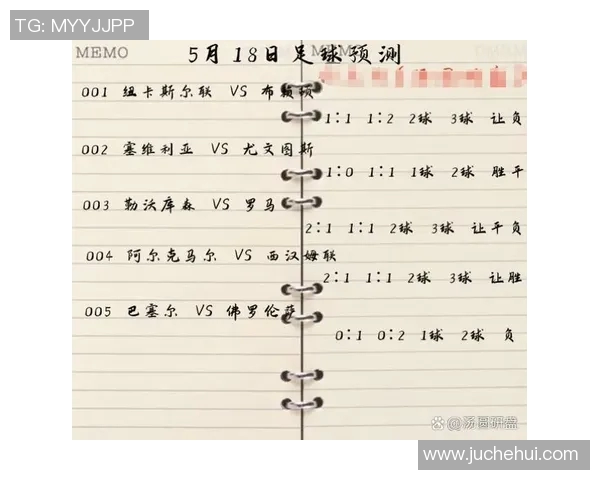 TG: MYYJJPP
MEMO
5月18日足球预测
001 纽卡斯尔联 VS 布赖顿
1:1 1:2 2球 3球 让负
002 塞维利亚 VS 尤文图斯
1:0 1:1 1球 2球 胜平
003 勒沃库森 VS 罗马
2:1 1:1 2球 3球 让平负
004 阿尔克马尔 VS 西汉姆联
2:1 1:1 2球 3球 让胜
005 巴塞尔 VS 佛罗伦萨
0:1 0:2 1球 2球 负
汤圆研盘
www.juchehui.com